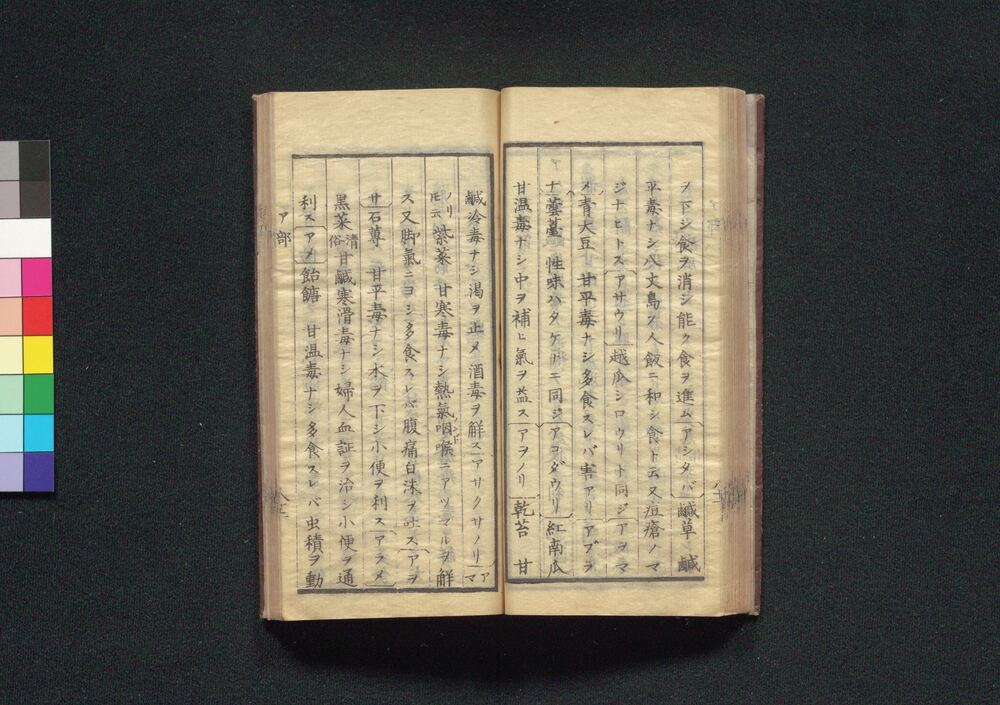 ヲ下シ食ヲ消シ能ク食ヲ進ム〔アシタバ〕鹹草 鹹
平毒ナシ八丈島ノ人飯ニ和シ食ト云又痘瘡ノマ
ジナヒトス〔アサウリ〕越瓜 シロウリト同ジ〔アヲマ
メ〕青大豆 甘平毒ナシ多食スレバ害アリ〔アブラ
ナ〕蕓薹 性味ハタケナニ同ジ〔アコダウリ〕紅南瓜
甘温毒ナシ中ヲ補ヒ氣ヲ益ス〔アヲノリ〕乾苔 甘
鹹冷毒ナシ渇ヲ止メ酒毒ヲ解ス〔アサクサノリ アマ
ノリ 紫菜 甘寒毒ナシ熱氣咽喉ニアツマルヲ解
ス又脚氣ニヨシ多食スレバ腹痛白沫ヲ吐ス〔アヲ
サ〕石蓴 甘平毒ナシ水ヲ下シ小便ヲ利ス〔アラメ〕
黒菜 清俗 甘鹹寒滑毒ナシ婦人血証ヲ治シ小便ヲ通
利ス〔アメ〕飴餹 甘温毒ナシ多食スレバ虫積ヲ動
ア部